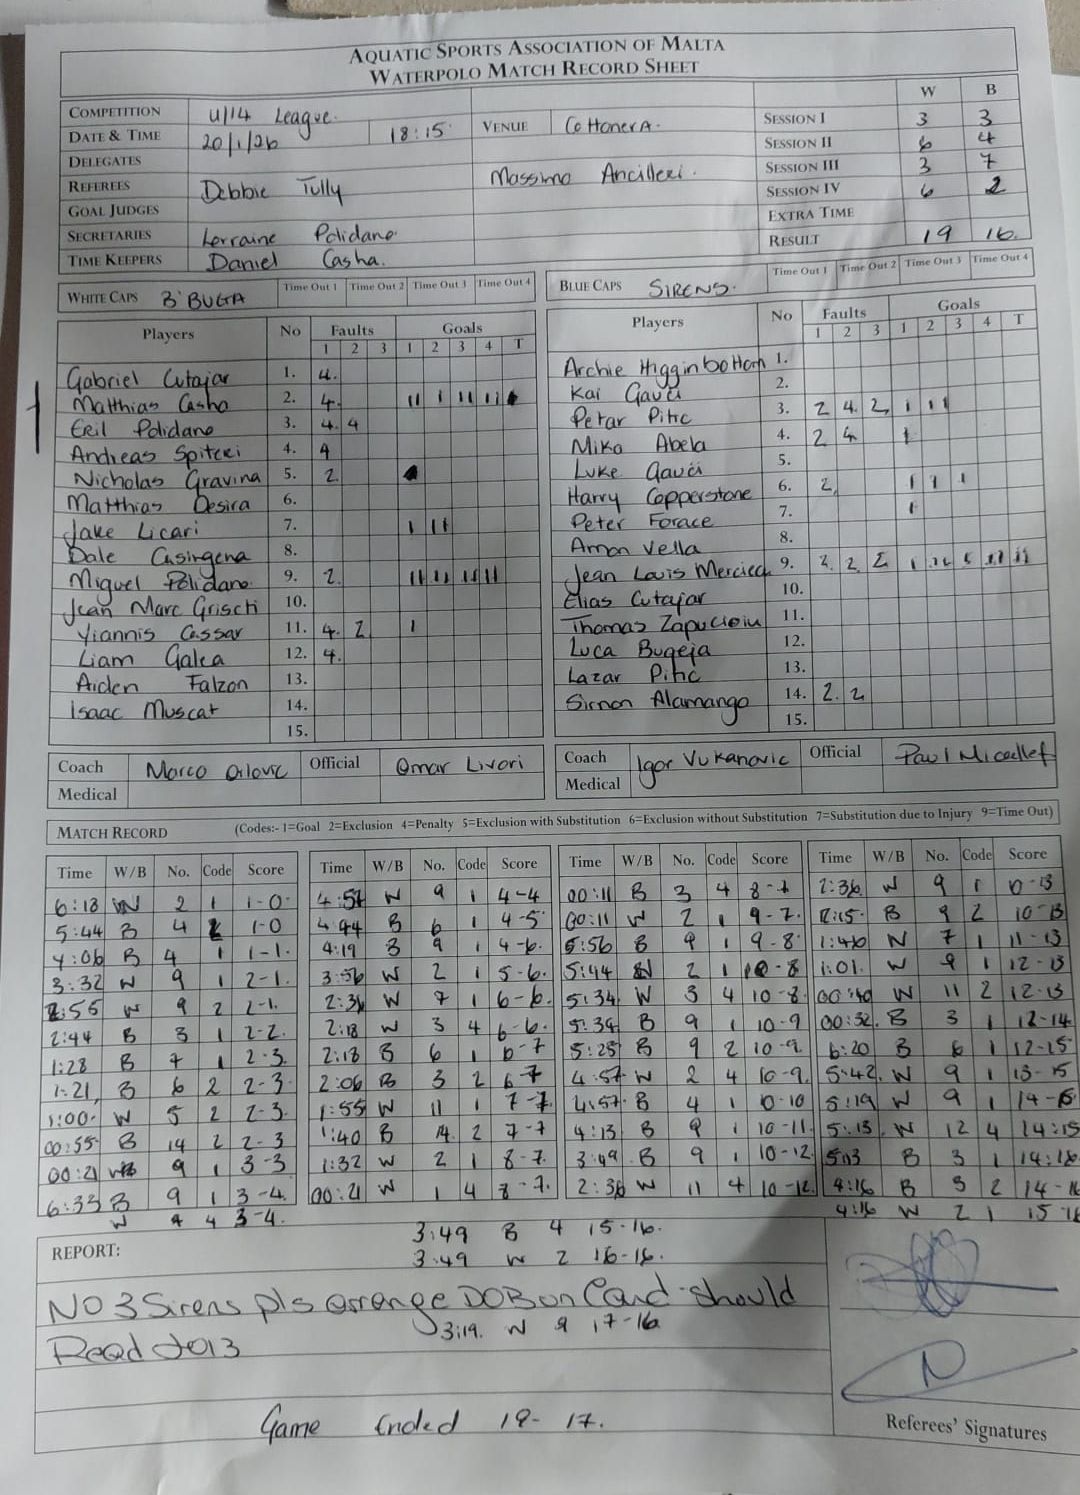 AQUATIC SPORTS ASSOCIATION OF MALTA
WATERPOLO MATCH RECORD SHEET
W B
COMPETITION U/14 League. SESSION I 3 3
DATE & TIME 20/1/26 18:15 VENUE Cottonera. SESSION II 6 4
DELEGATES SESSION III 3 7
REFEREES Debbie Tully Massimo Ancilleri. SESSION IV 6 2
GOAL JUDGES EXTRA TIME
SECRETARIES Lorraine Polidano RESULT 19 16.
TIME KEEPERS Daniel Casha.
WHITE CAPS B'BUGA Time Out 1 Time Out 2 Time Out 3 Time Out 4
Players No Faults Goals
1 2 3 1 2 3 4 T
Gabriel Cutajar 1. 4.
Matthias Casha 2. 4. 11 1 11 11
Eril Polidano 3. 4. 4
Andreas Spiteri 4. 4
Nicholas Gravina 5. 2.
Matthias Desira 6.
Jake Licari 7. 1 11
Dale Casingena 8.
Miguel Polidano 9. 2. 11 11 11 11
Jean Marc Grischi 10.
Yiannis Cassar 11. 4. 2. 1
Liam Galea 12. 4.
Aiden Falzon 13.
Isaac Muscat 14.
15.
Coach Marco Orlovic Official Omar Livori
Medical
BLUE CAPS SIRENS. Time Out 1 Time Out 2 Time Out 3 Time Out 4
Players No Faults Goals
1 2 3 1 2 3 4 T
Archie Higginbottom 1.
Kai Gauci 2.
Petar Pitic 3. 2 4. 2 1 11
Mika Abela 4. 2 4 1
Luke Gauci 5.
Harry Copperstone 6. 2, 1 1 1
Peter Forace 7. 1
Amon Vella 8.
Jean Louis Mercieca 9. 2. 2 2
Elias Cutajar 10.
Thomas 11.
Luca Bugeja 12.
Lazar Pitic 13.
Simon Alamango 14. 2. 2
15.
Coach Igor Vukanovic Official Paul Micallef
Medical
MATCH RECORD (Codes:- 1=Goal 2=Exclusion 4=Penalty 5=Exclusion with Substitution 6=Exclusion without Substitution 7=Substitution due to Injury 9=Time Out)
Time W/B No. Code Score
6:18 W 2 1 1-0
5:44 B 4 2 1-0
4:06 B 4 1 1-1.
3:32 W 9 1 2-1.
2:55 W 9 2 2-1.
2:44 B 3 1 2-2.
1:28 B 7 1 2-3
1:21, B 6 2 2-3
1:00. W 5 2 2-3.
00:55 B 14 2 2-3
00:21 W 9 1 3-3
6:33 B 9 1 3-4.
W 4 3-4.
Time W/B No. Code Score
4:54 W 9 1 4-4
B 6 1 4-5
4:19 B 9 1 4-6.
3:56 W 2 1 5-6.
2:36 W 7 1 6-6.
2:18 W 3 4 6-6.
2:18 B 6 1 6-7
2:06 B 3 2 6-7
1:55 W 11 1 7-7.
1:40 B 14. 2 7-7
1:32 W 2 1 8-7.
00:21 W 1 4 8-7.
Time W/B No. Code Score
00:11 B 3 4 8-7
00:11 W 2 1 9-7.
5:56 B 9 1 9-8
5:44 W 2 1 10-8
5:34 W 3 4 10-8
5:34 B 9 1 10-9
5:25 B 9 2 10-9
4:57 W 2 4 10-9.
4:57. B 4 1 10-10
4:13 B 9 1 10-11.
3:49. B 9 1 10-12.
2:36 W 11 4 10-12
Time W/B No. Code Score
2:36. W 9 1 10-13
2:15. B 9 2 10-13
1:40 W 7 1 11-13
1:01. W 9 1 12-13
00:40 W 11 2 12-13
00:32. B 3 1 12-14
6:20 B 6 1 12-15
5:42. W 9 1 13-15
5:19 W 9 1 14-15
5:13. W 12 4 14:15
5:13 B 3 1 14:16
4:16 B 3 2 14-16
4:16 W 2 1 15
REPORT:
3:49 B 4 15-16.
3:49 W 2 16-16.
NO 3 Sirens pls arrange DOB on Card should
Read 2013
3:19. W 9 17-16
Game Ended 19-17.
Referees' Signatures